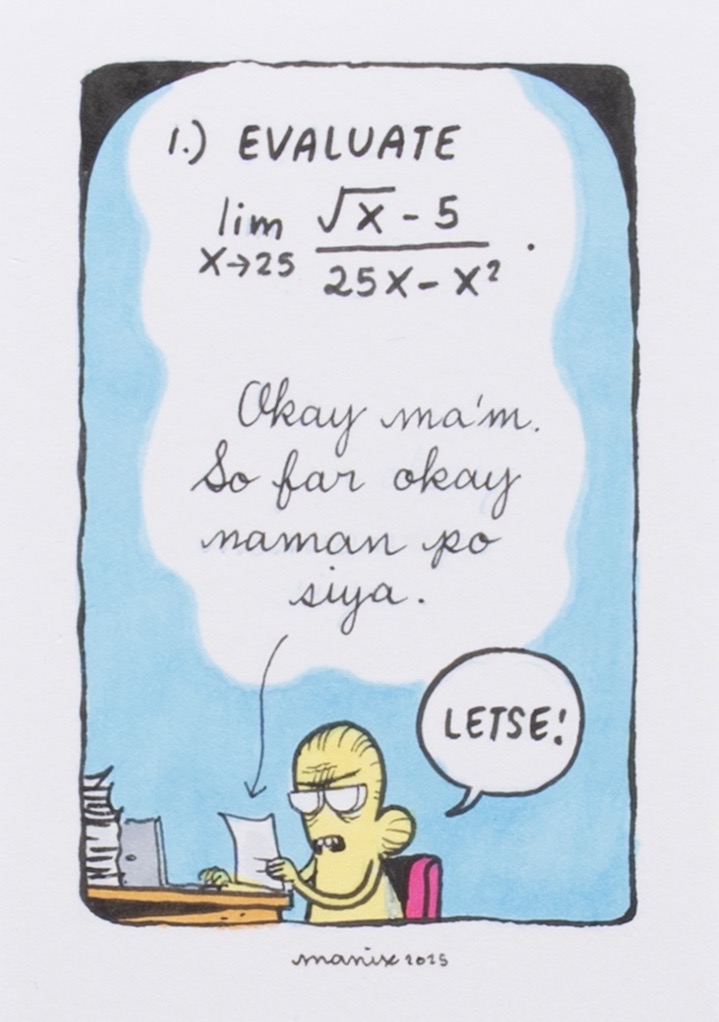 1.) EVALUATE
lim √x - 5
x→25 25x - x² .
Okay ma'm.
So far okay
naman po
siya.
LETSE!
manix 2025